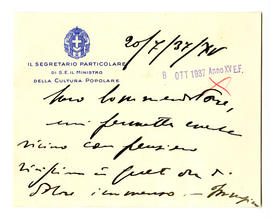 IL SEGRETARIO PARTICOLARE
DI S.E. IL MINISTRO
DELLA CULTURA POPOLARE
20/7/37/XV
8 OTT 1937 Anno XV E.F.
Caro Commendatore,
mi permetta
vicino con pensiero
in di
dolore immenso. —